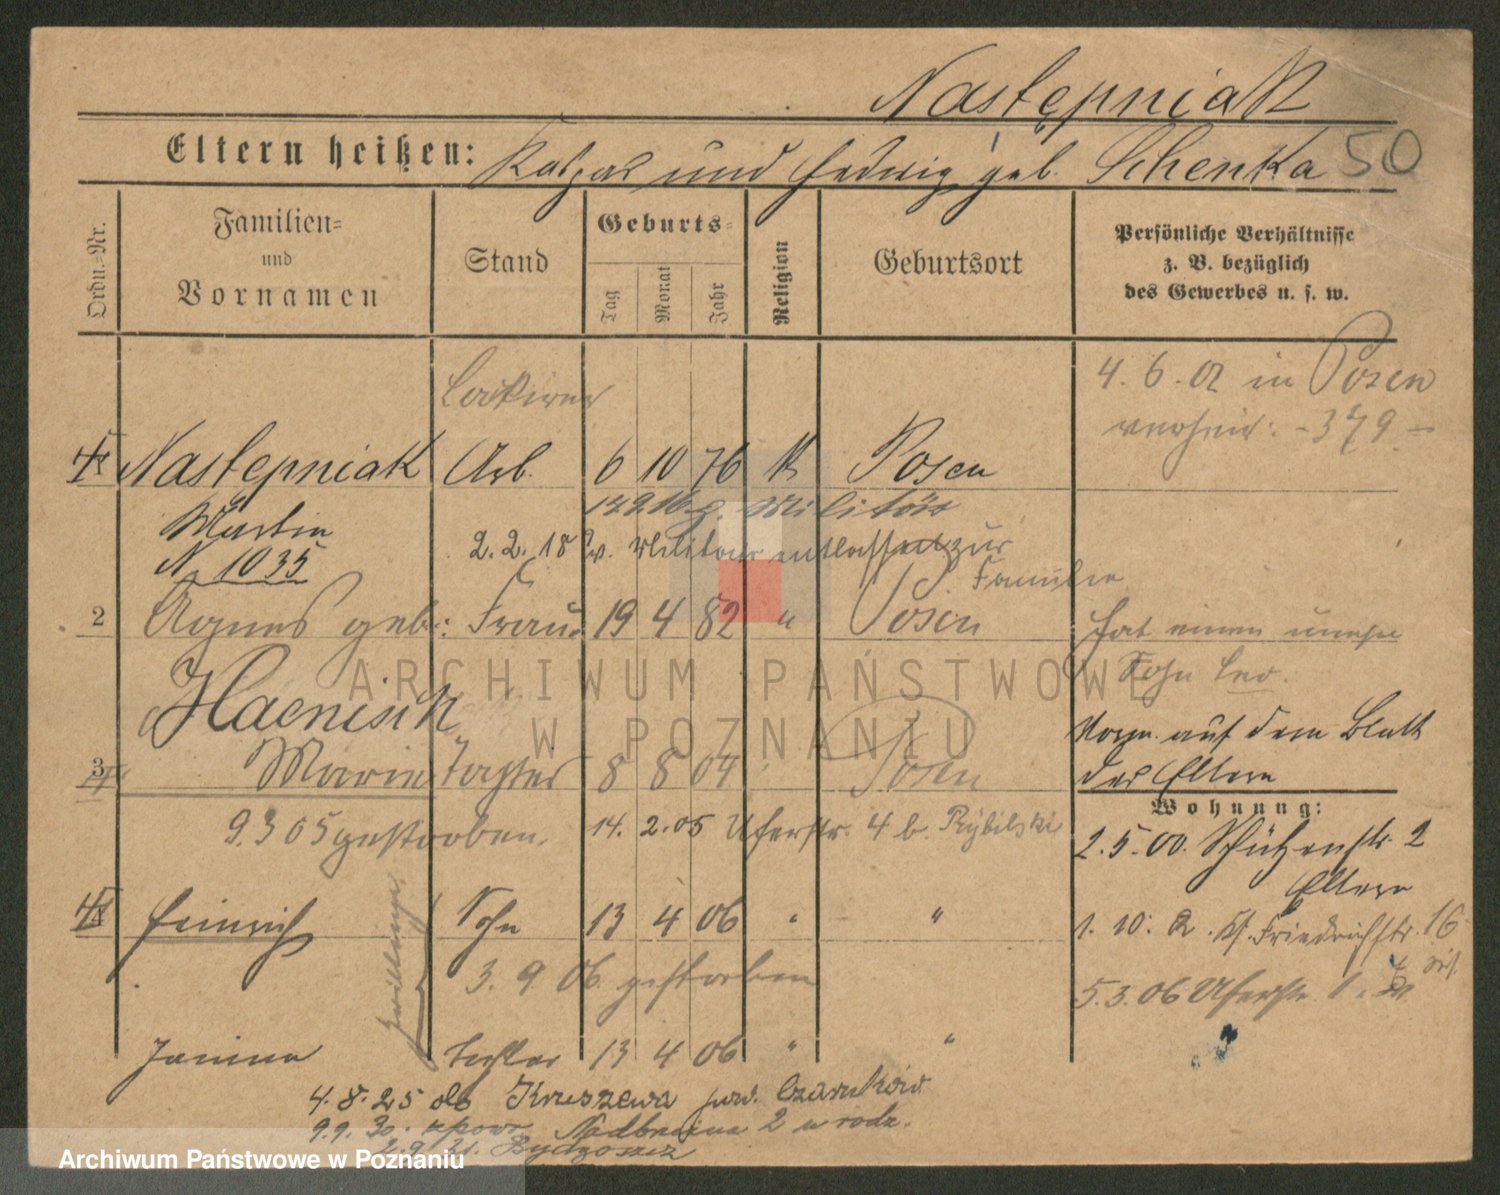 Następniak
Eltern heißen: Kaspar und Hedwig geb. Schenka 50
Ordn.-Nr.
Familien- und Vornamen
Stand
Geburts-
Tag Monat Jahr
Religion
Geburtsort
Persönliche Verhältnisse
z. B. bezüglich
des Gewerbes u. s. w.
Lackirer
4. 6. 02 in Posen
verheir: - 379 -
1 Nastepniak Arb. 6 10 76 k Posen
Martin
N 1035
2. 2. 18 v. Militär entlassen zur
Familie
2 Agnes geb.: Frau 19 4 82 " Posen
Hat einen unehe
Sohn Leo.
Haenisch
Vorgn. auf dem Blatt
der Eltern
3 Marie Tochter 8 8 04 Posen
Wohnung:
9 3 05 gestorben. 14. 2. 05 Uferstr. 4 b. Rybilski
2. 5. 00. Schützenstr. 2
Eltern
4 Heinrich Sohn 13 4 06 " "
1. 10. 02. Kl. Friedrichstr. 16
3. 9 06 gestorben
5. 3. 06 Uferstr.
Zwillinge
Janina Tochter 13 4 06 " "
4. 8. 25 do Kruszewa pow. Czarnków
9. 9. 30. z pow. Nadbrzeżna 2 u rodz.
Bydgoszcz
ARCHIWUM PAŃSTWOWE
W POZNANIU
Archiwum Państwowe w Poznaniu